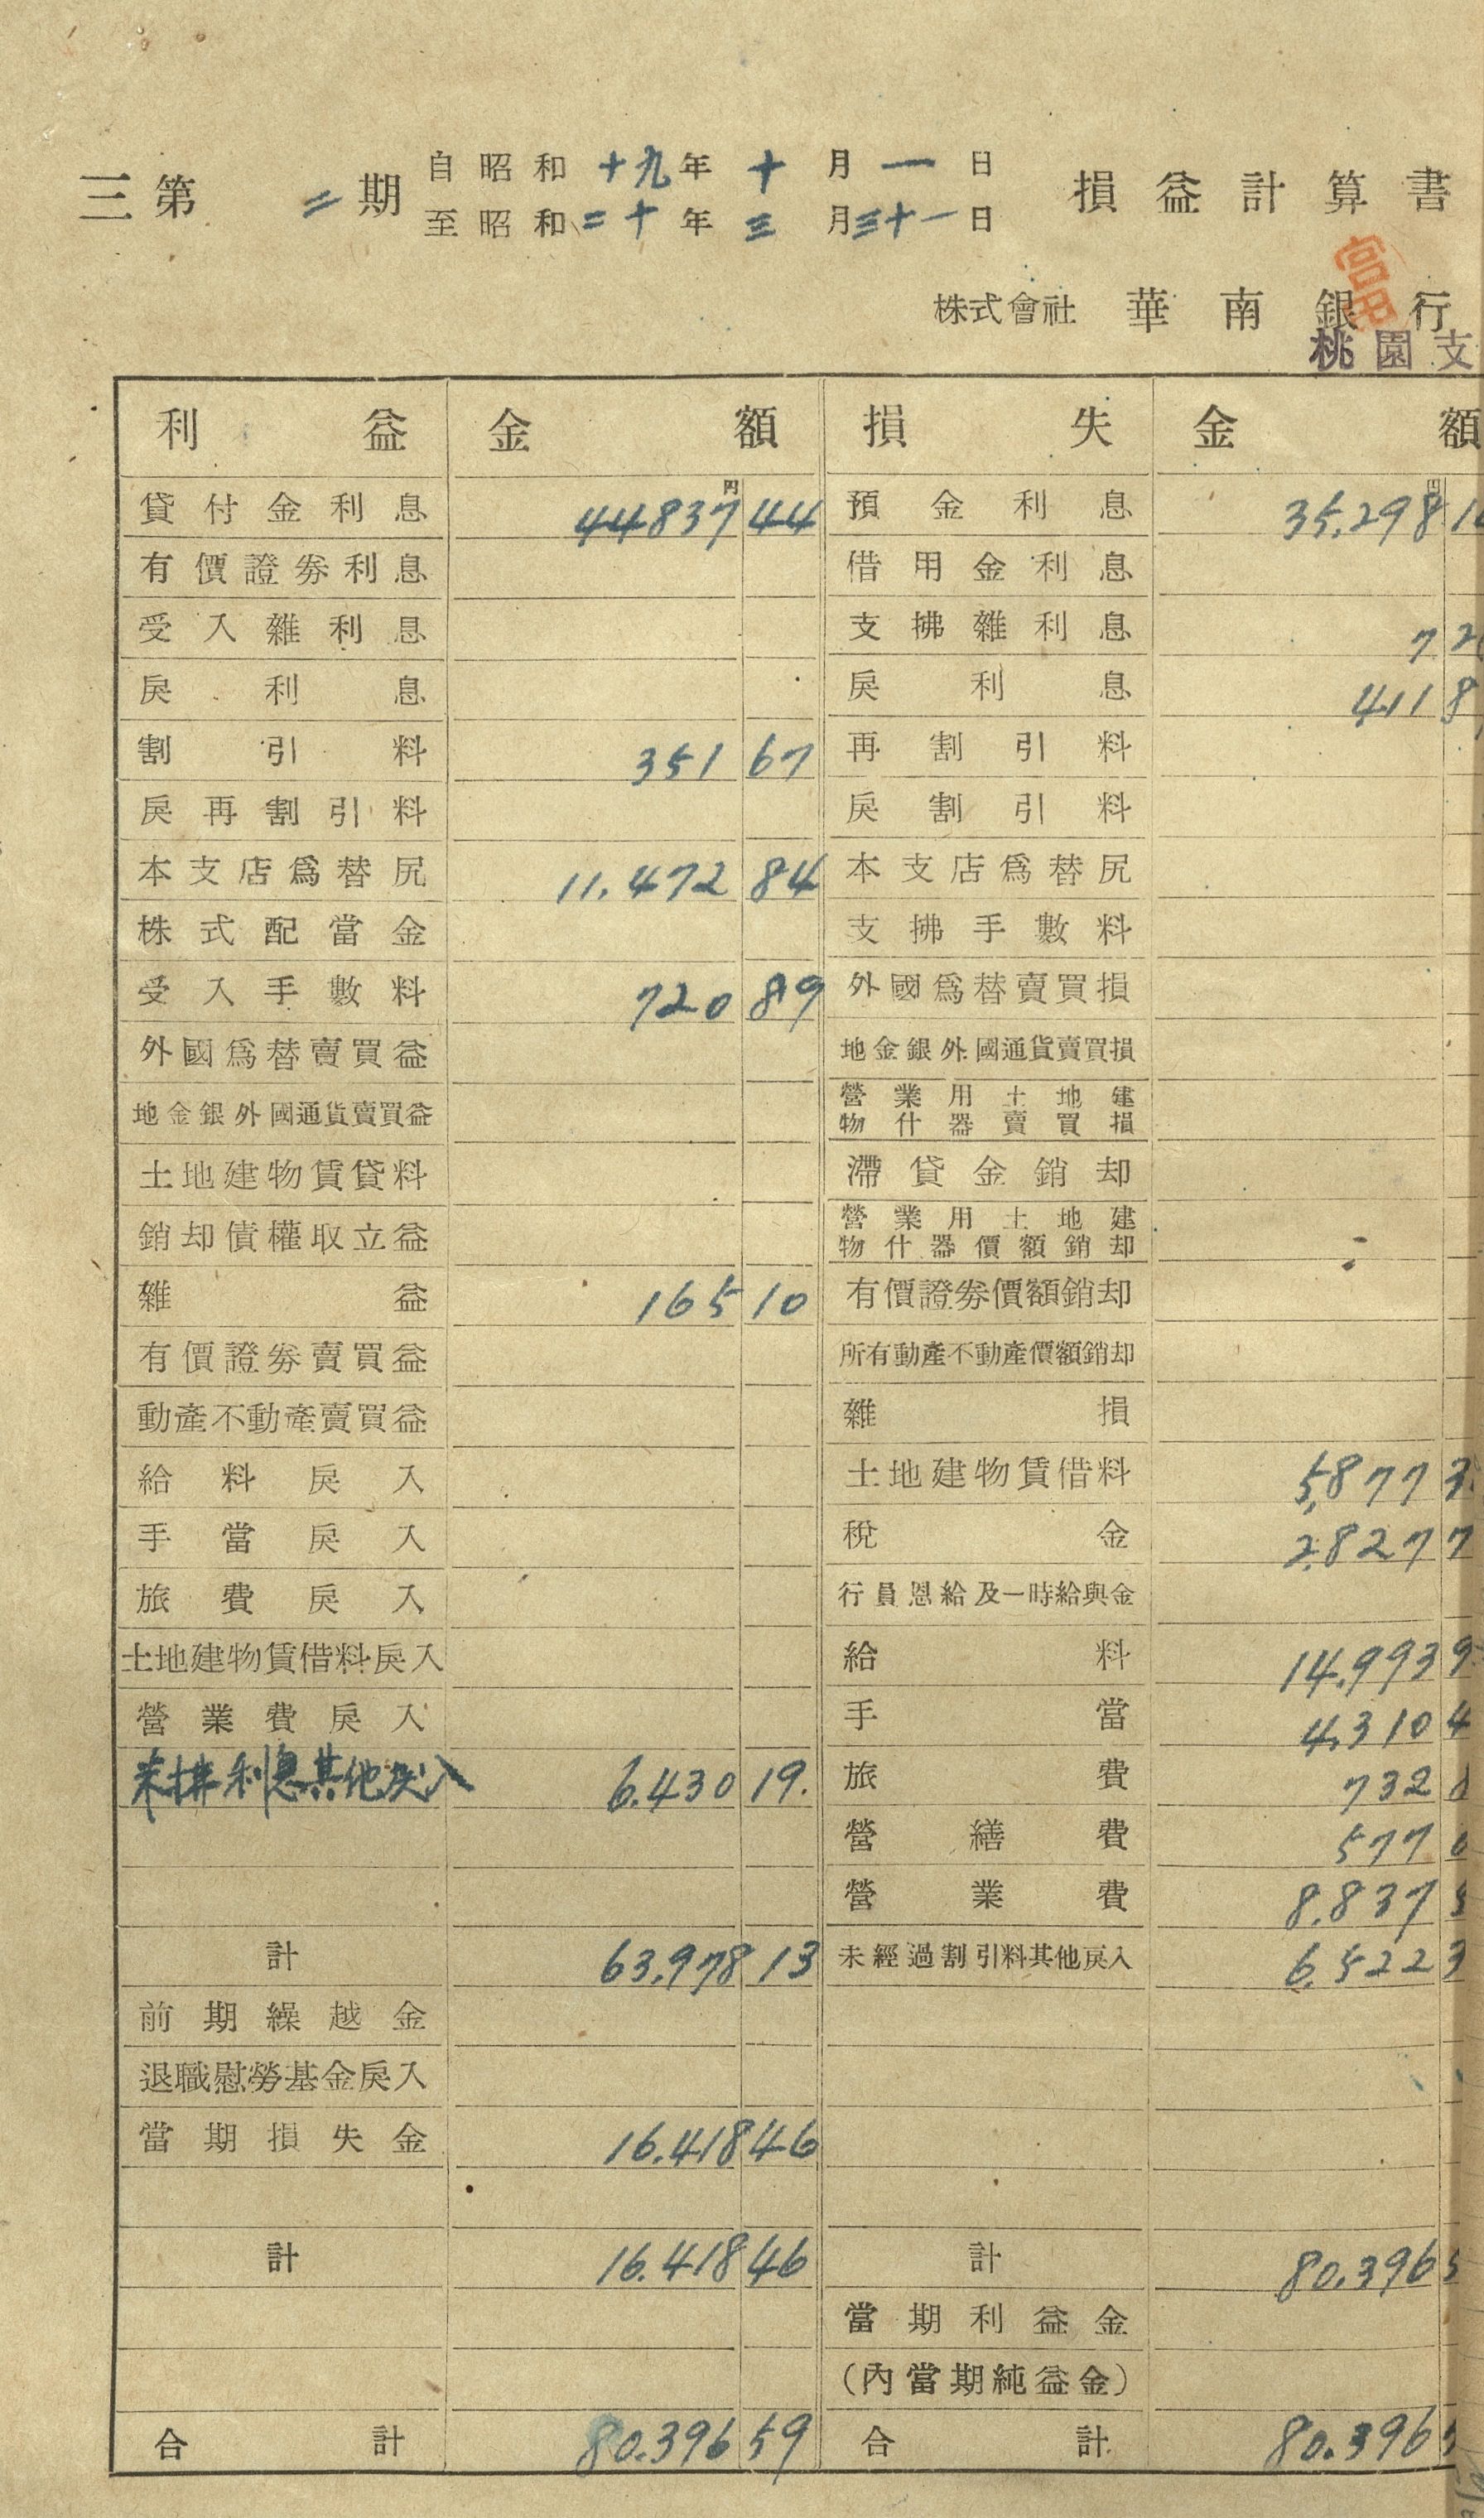 三第 二 期 自昭和十九年十月一日 損益計算書
至昭和二十年三月三十一日
株式會社 華南銀行
桃園支
利益 金額 損失 金額
貸付金利息 44837 44 預金利息 35.298
有價證券利息 借用金利息
受入雜利息 支拂雜利息 7
戾利息 戾利息 411
割引料 351 67 再割引料
戾再割引料 戾割引料
本支店爲替尻 11.472 84 本支店爲替尻
株式配當金 支拂手數料
受入手數料 720 89 外國爲替賣買損
外國爲替賣買益 地金銀外國通貨賣買損
地金銀外國通貨賣買益 營業用土地建物什器賣買損
土地建物賃貸料 滯貸金銷却
銷却債權取立益 營業用土地建物什器價額銷却
雜益 165 10 有價證券價額銷却
有價證券賣買益 所有動產不動產價額銷却
動產不動產賣買益 雜損
給料戾入 土地建物賃借料 5,877
手當戾入 稅金 2,827
旅費戾入 行員恩給及一時給與金
土地建物賃借料戾入 給料 14.993
營業費戾入 手當 4,310
未拂利息其他戾入 6.430 19. 旅費 732
營繕費 577
營業費 8.837
計 63.978 13 未經過割引料其他戾入 6.522
前期繰越金
退職慰勞基金戾入
當期損失金 16.418 46
計 16.418 46 計 80.396
當期利益金
(內當期純益金)
合計 80.396 59 合計 80.396